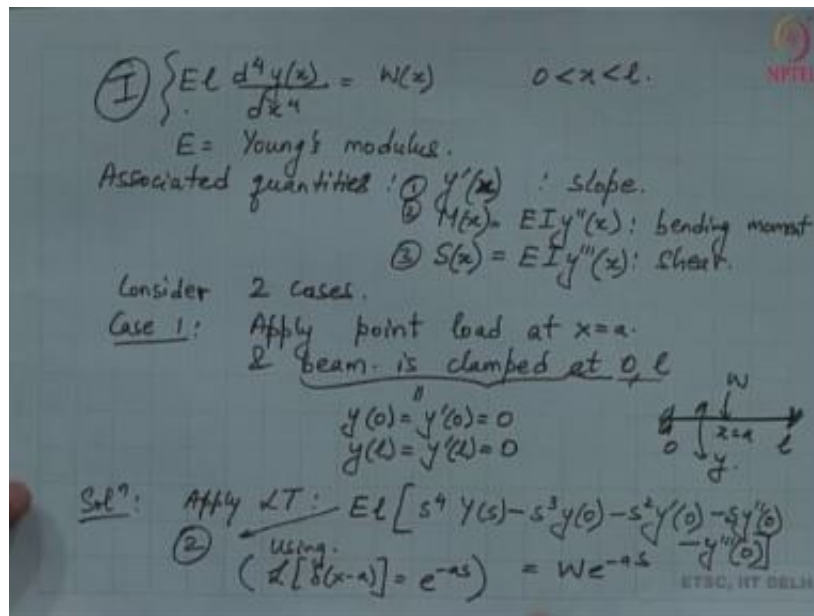 NPTEL
Ⓘ { El d⁴y(x)/dx⁴ = W(x) 0 < x < l.
E = Young's modulus.
Associated quantities : ① y'(x) : slope.
② M(x) = EIy''(x) : bending moment
③ S(x) = EIy'''(x) : shear.
Consider 2 cases.
Case 1: Apply point load at x = a.
& beam is clamped at 0, l
y(0) = y'(0) = 0
y(l) = y'(l) = 0
W
0 x=a l
y.
Solⁿ: Apply LT : El [ s⁴ Y(s) - s³y(0) - s²y'(0) - sy''(0)
- y'''(0)]
② using.
( L[δ(x-a)] = e^-as ) = We^-as
ETSC, IIT DELHI